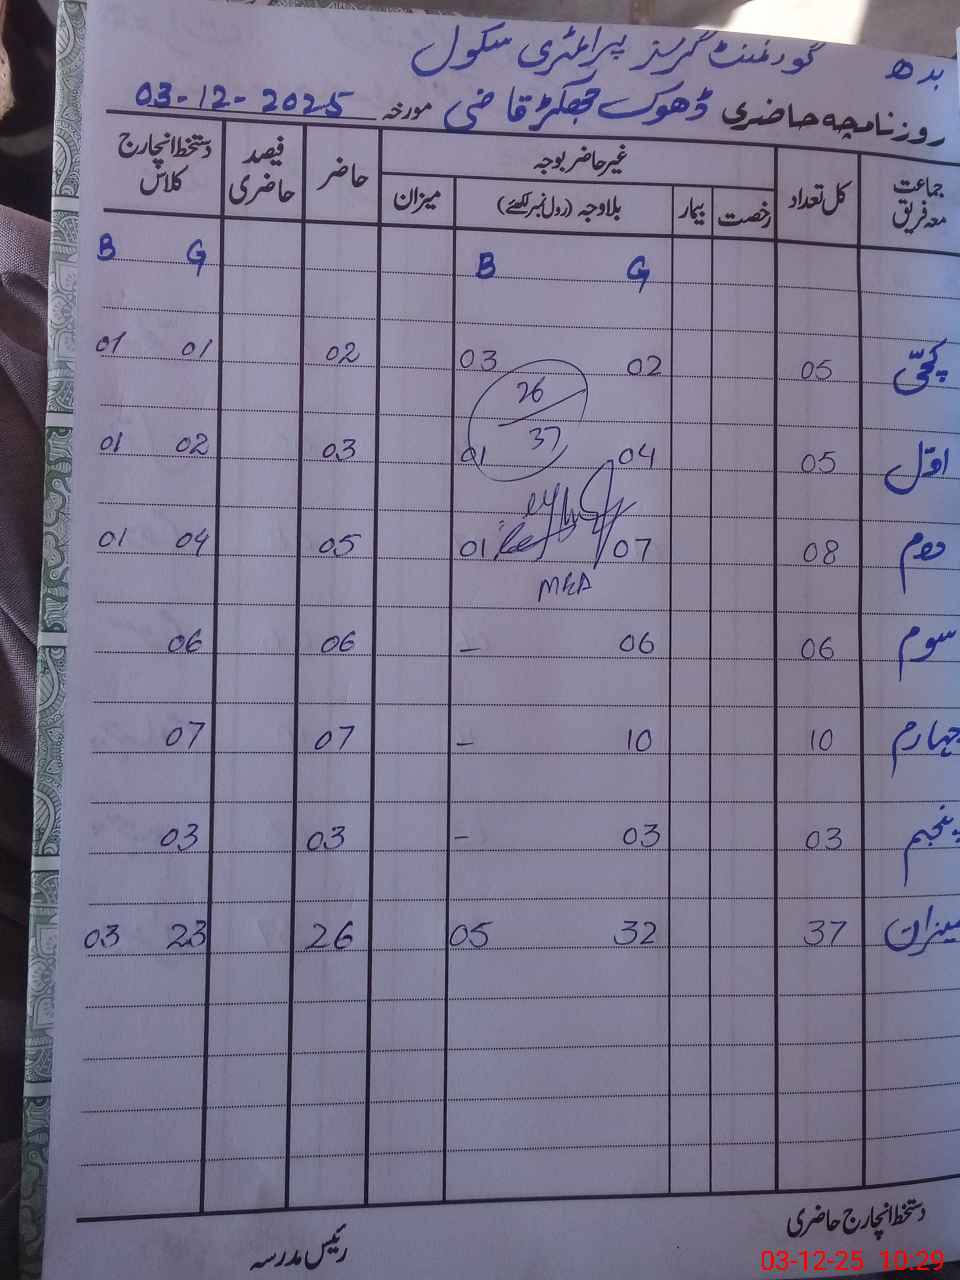 بدھ گورنمنٹ گرلز پرائمری سکول
روزنامچہ حاضری ڈھوک جھکڑ قاضی مورخہ 03-12-2025
جماعت معہ فریق کل تعداد غیر حاضر بوجہ حاضر فیصد حاضری دستخط انچارج کلاس
رخصت بیمار بلاوجہ (رول نمبر لکھئے) میزان
G B G B
کچی 05 02 03 02 01 01
26
37
اول 05 04 01 03 02 01
دوم 08 07 01 05 04 01
MEA
سوم 06 06 – 06 06
چہارم 10 10 – 07 07
پنجم 03 03 – 03 03
میزان 37 32 05 26 23 03
دستخط انچارج حاضری
رئیس مدرسہ
03-12-25 10:29